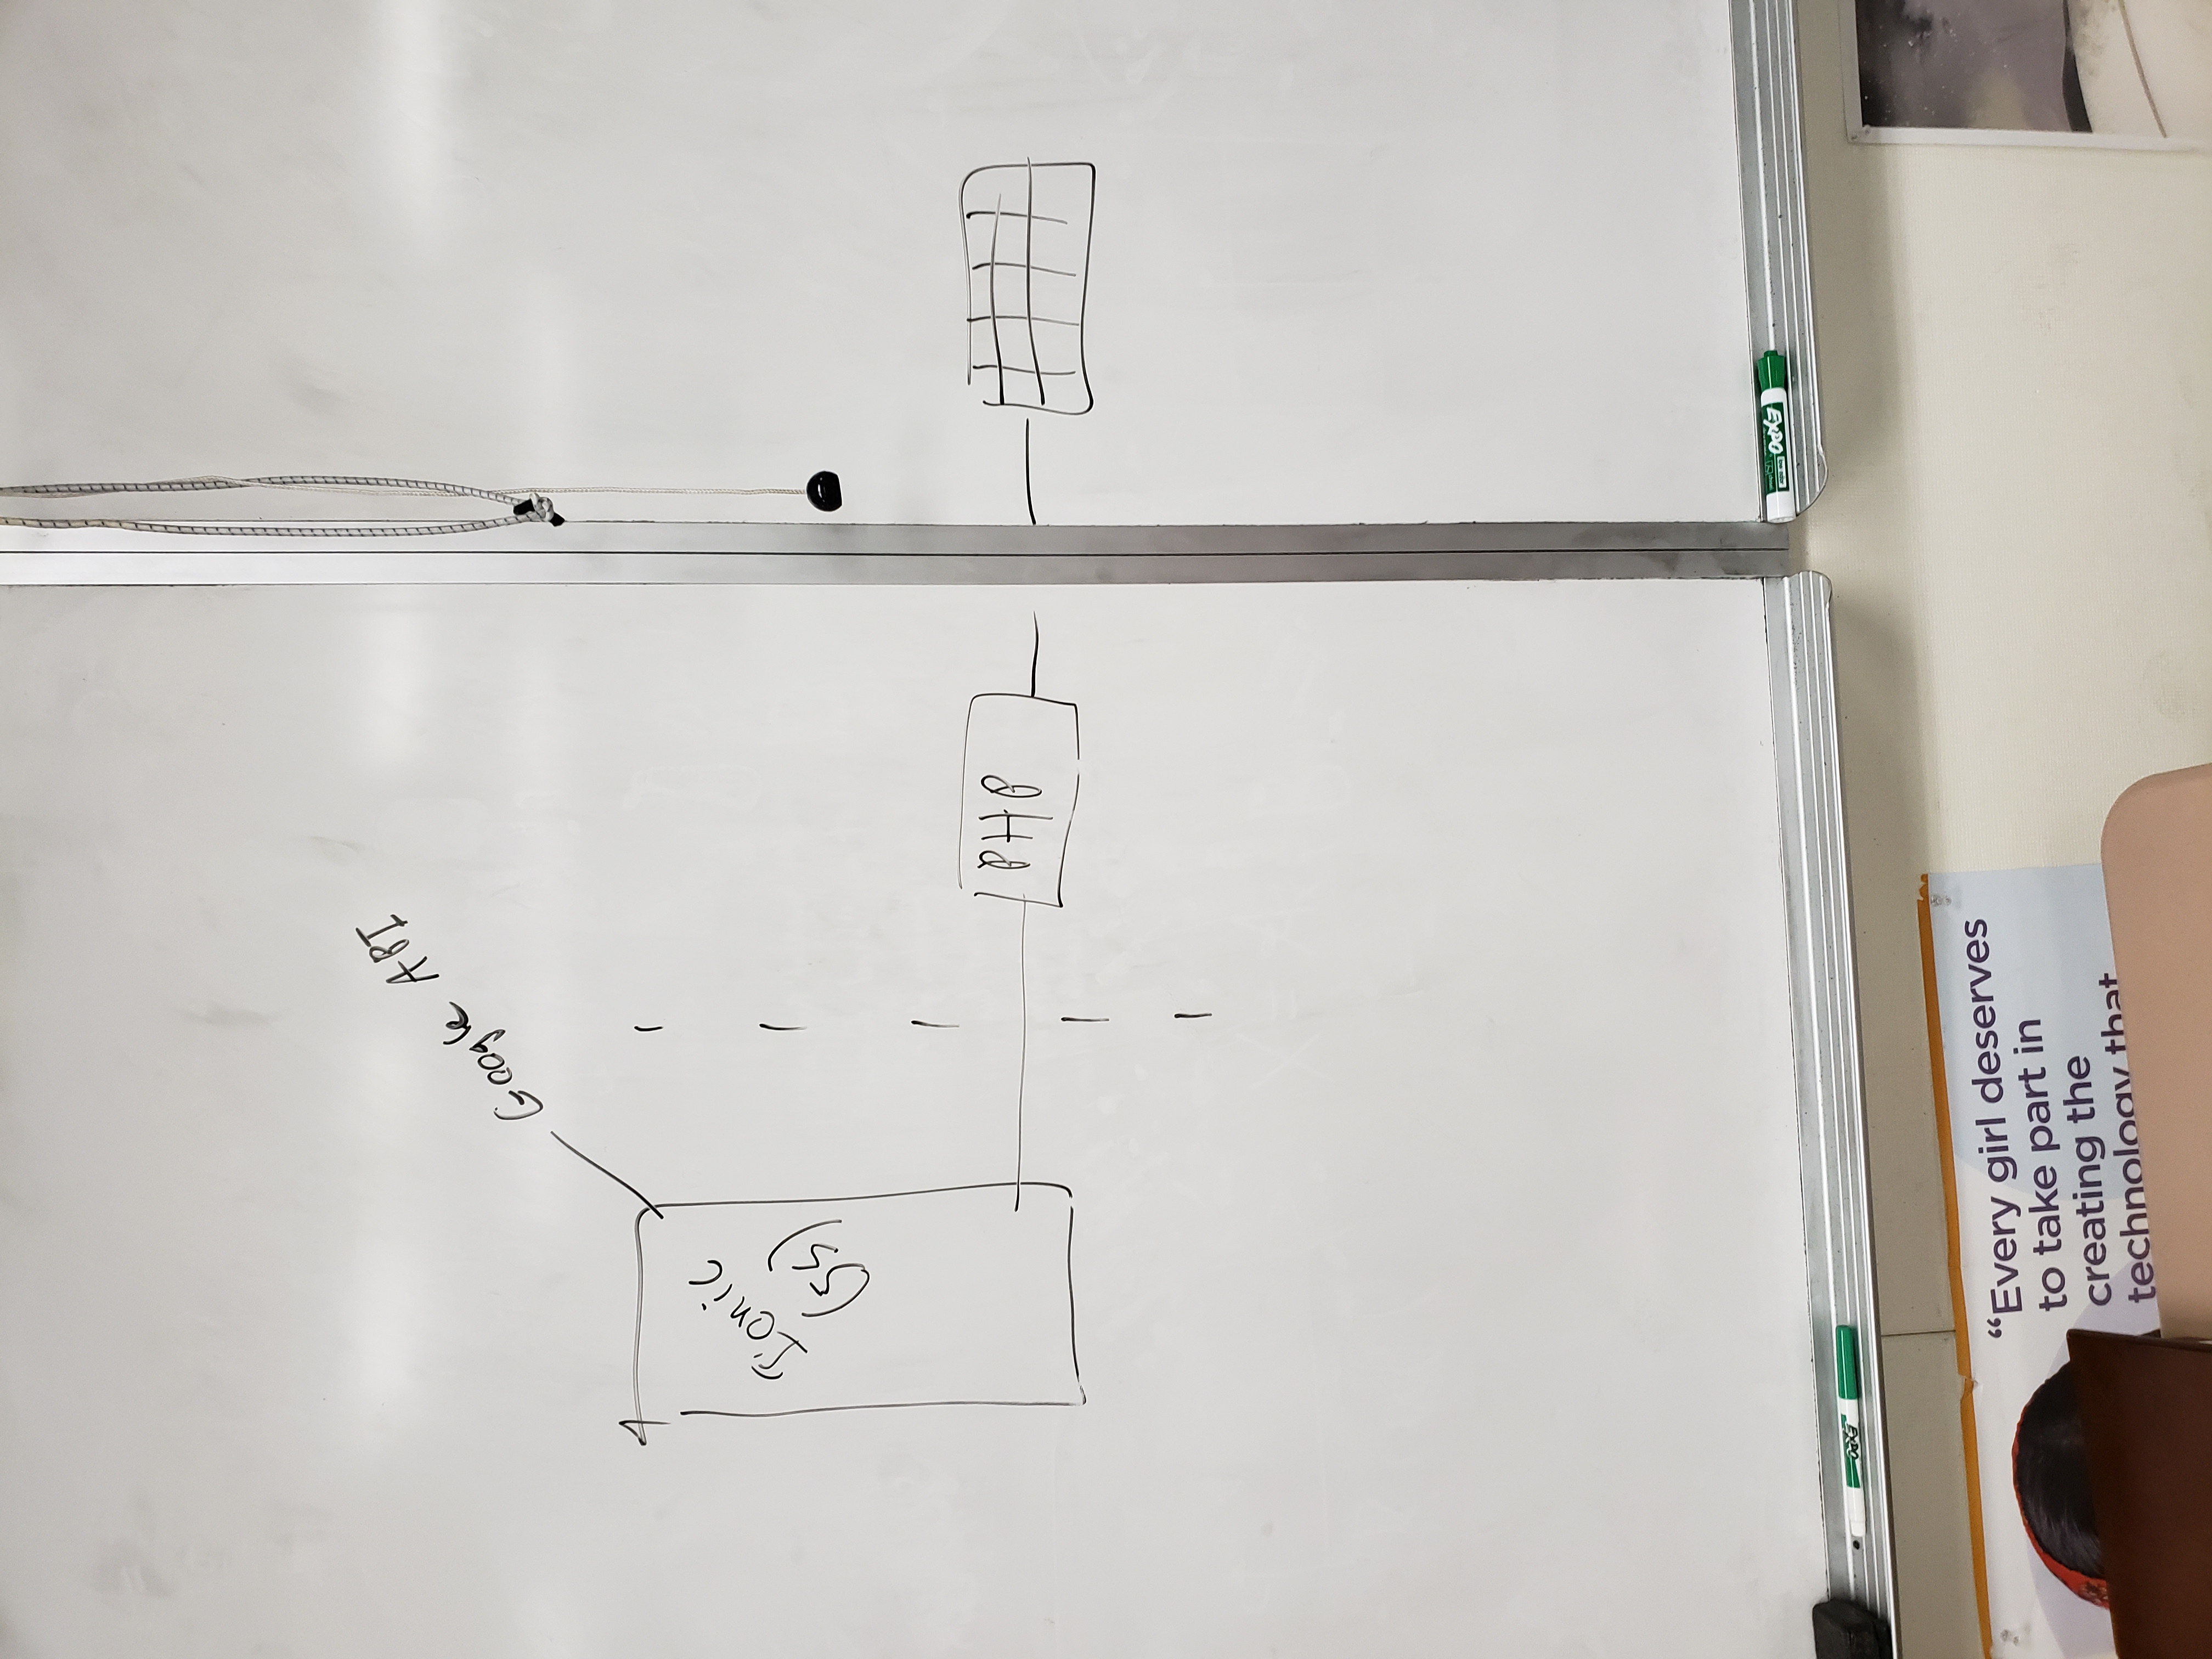 Google API
Ionic
(JS)
PHP
EXPO
EXPO
“Every girl deserves
to take part in
creating the
technology that